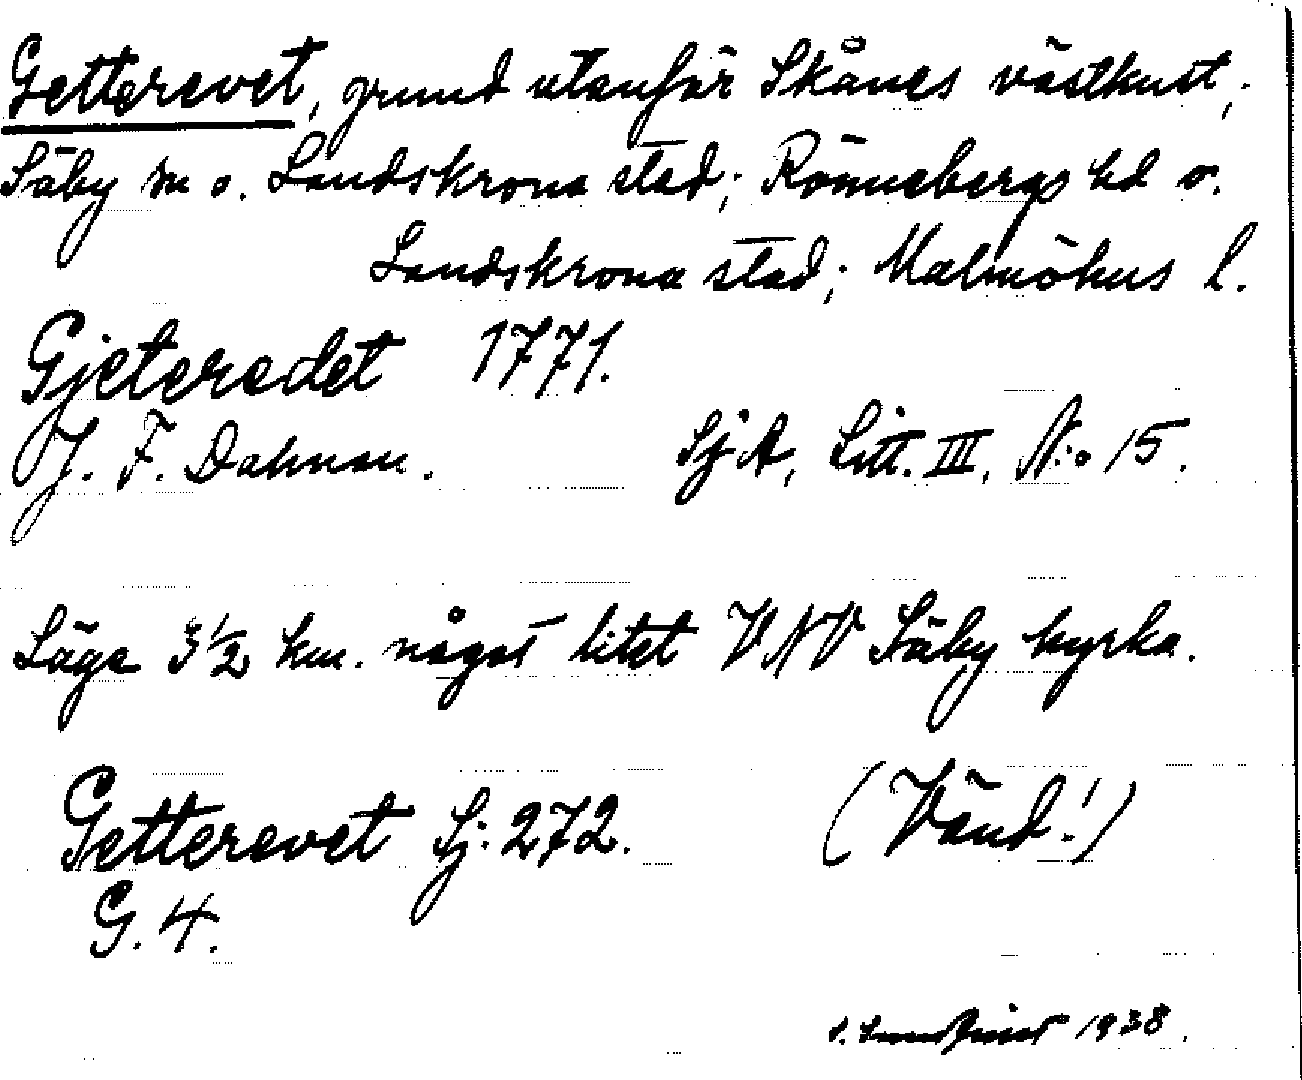 Getterevet, grund utanför Skånes västkust;
Säby sn o. Landskrona stad; Rönnebergs hd o.
Landskrona stad; Malmöhus l.
Gjeteredet 1771.
J. F. Dahman. SjA, Litt. III, N:o 15.
Läge 3 1/2 km. något litet VNV Säby kyrka.
Getterevet Sj. 272. (Vänd!)
G. 4.
1938.